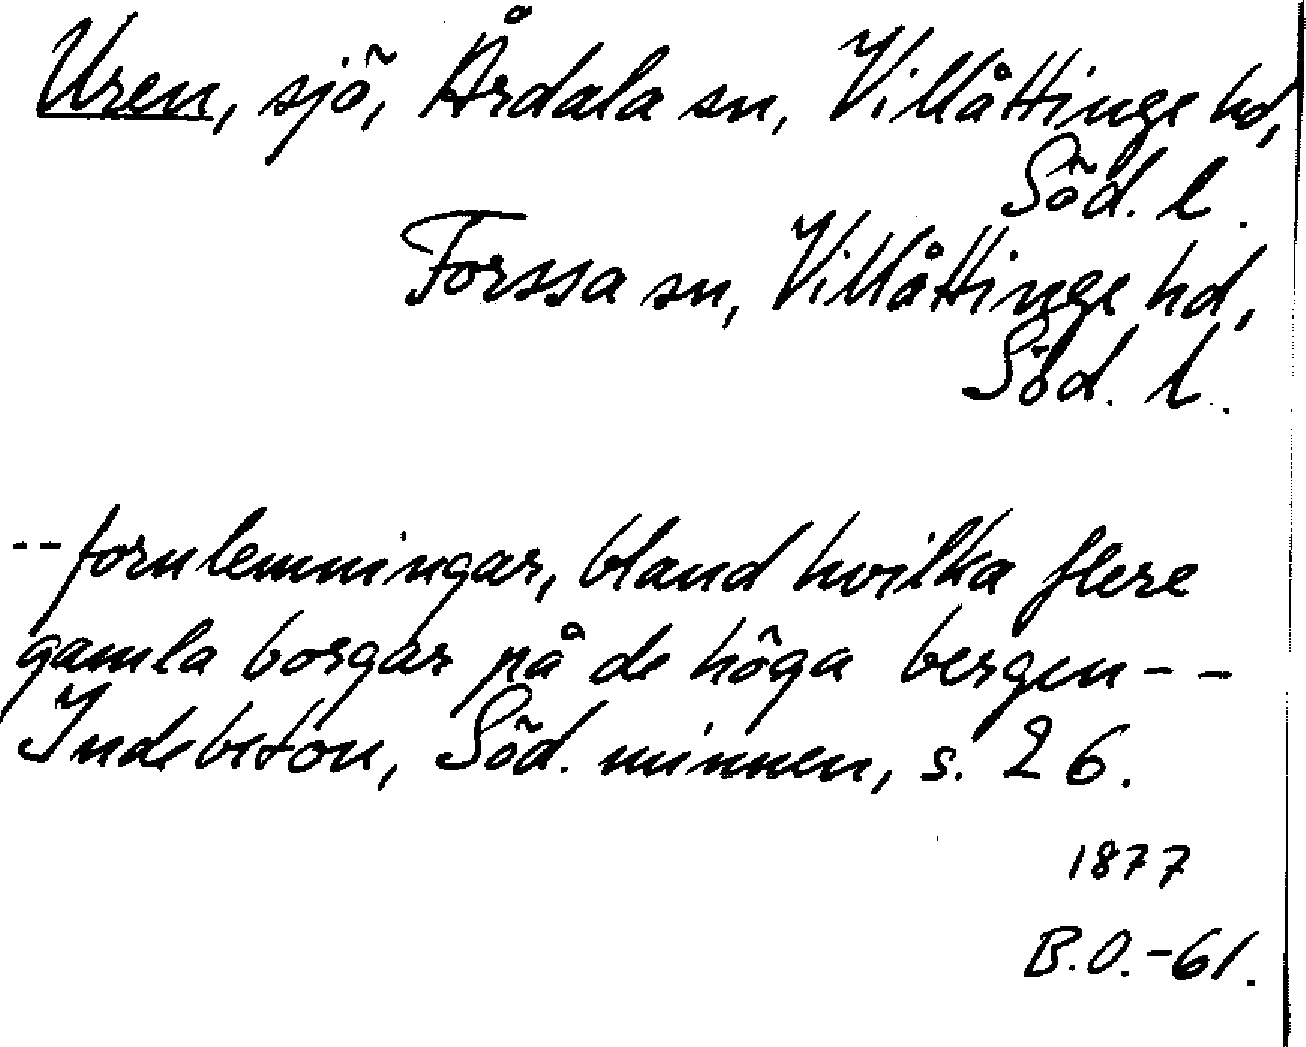 Uren, sjö, Årdala sn, Villåttinge hd,
Söd. l.
Forssa sn, Villåttinge hd,
Söd. l.
-- fornlemningar, bland hvilka flere
gamla borgar på de höga bergen --
Indebetou, Söd. minnen, s. 26.
1877
B.O.-61.